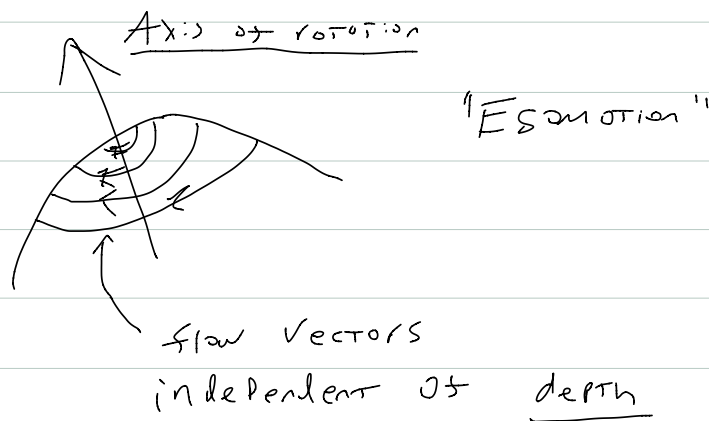 Axis of rotation
"Egomotion"
flow vectors
independent of depth